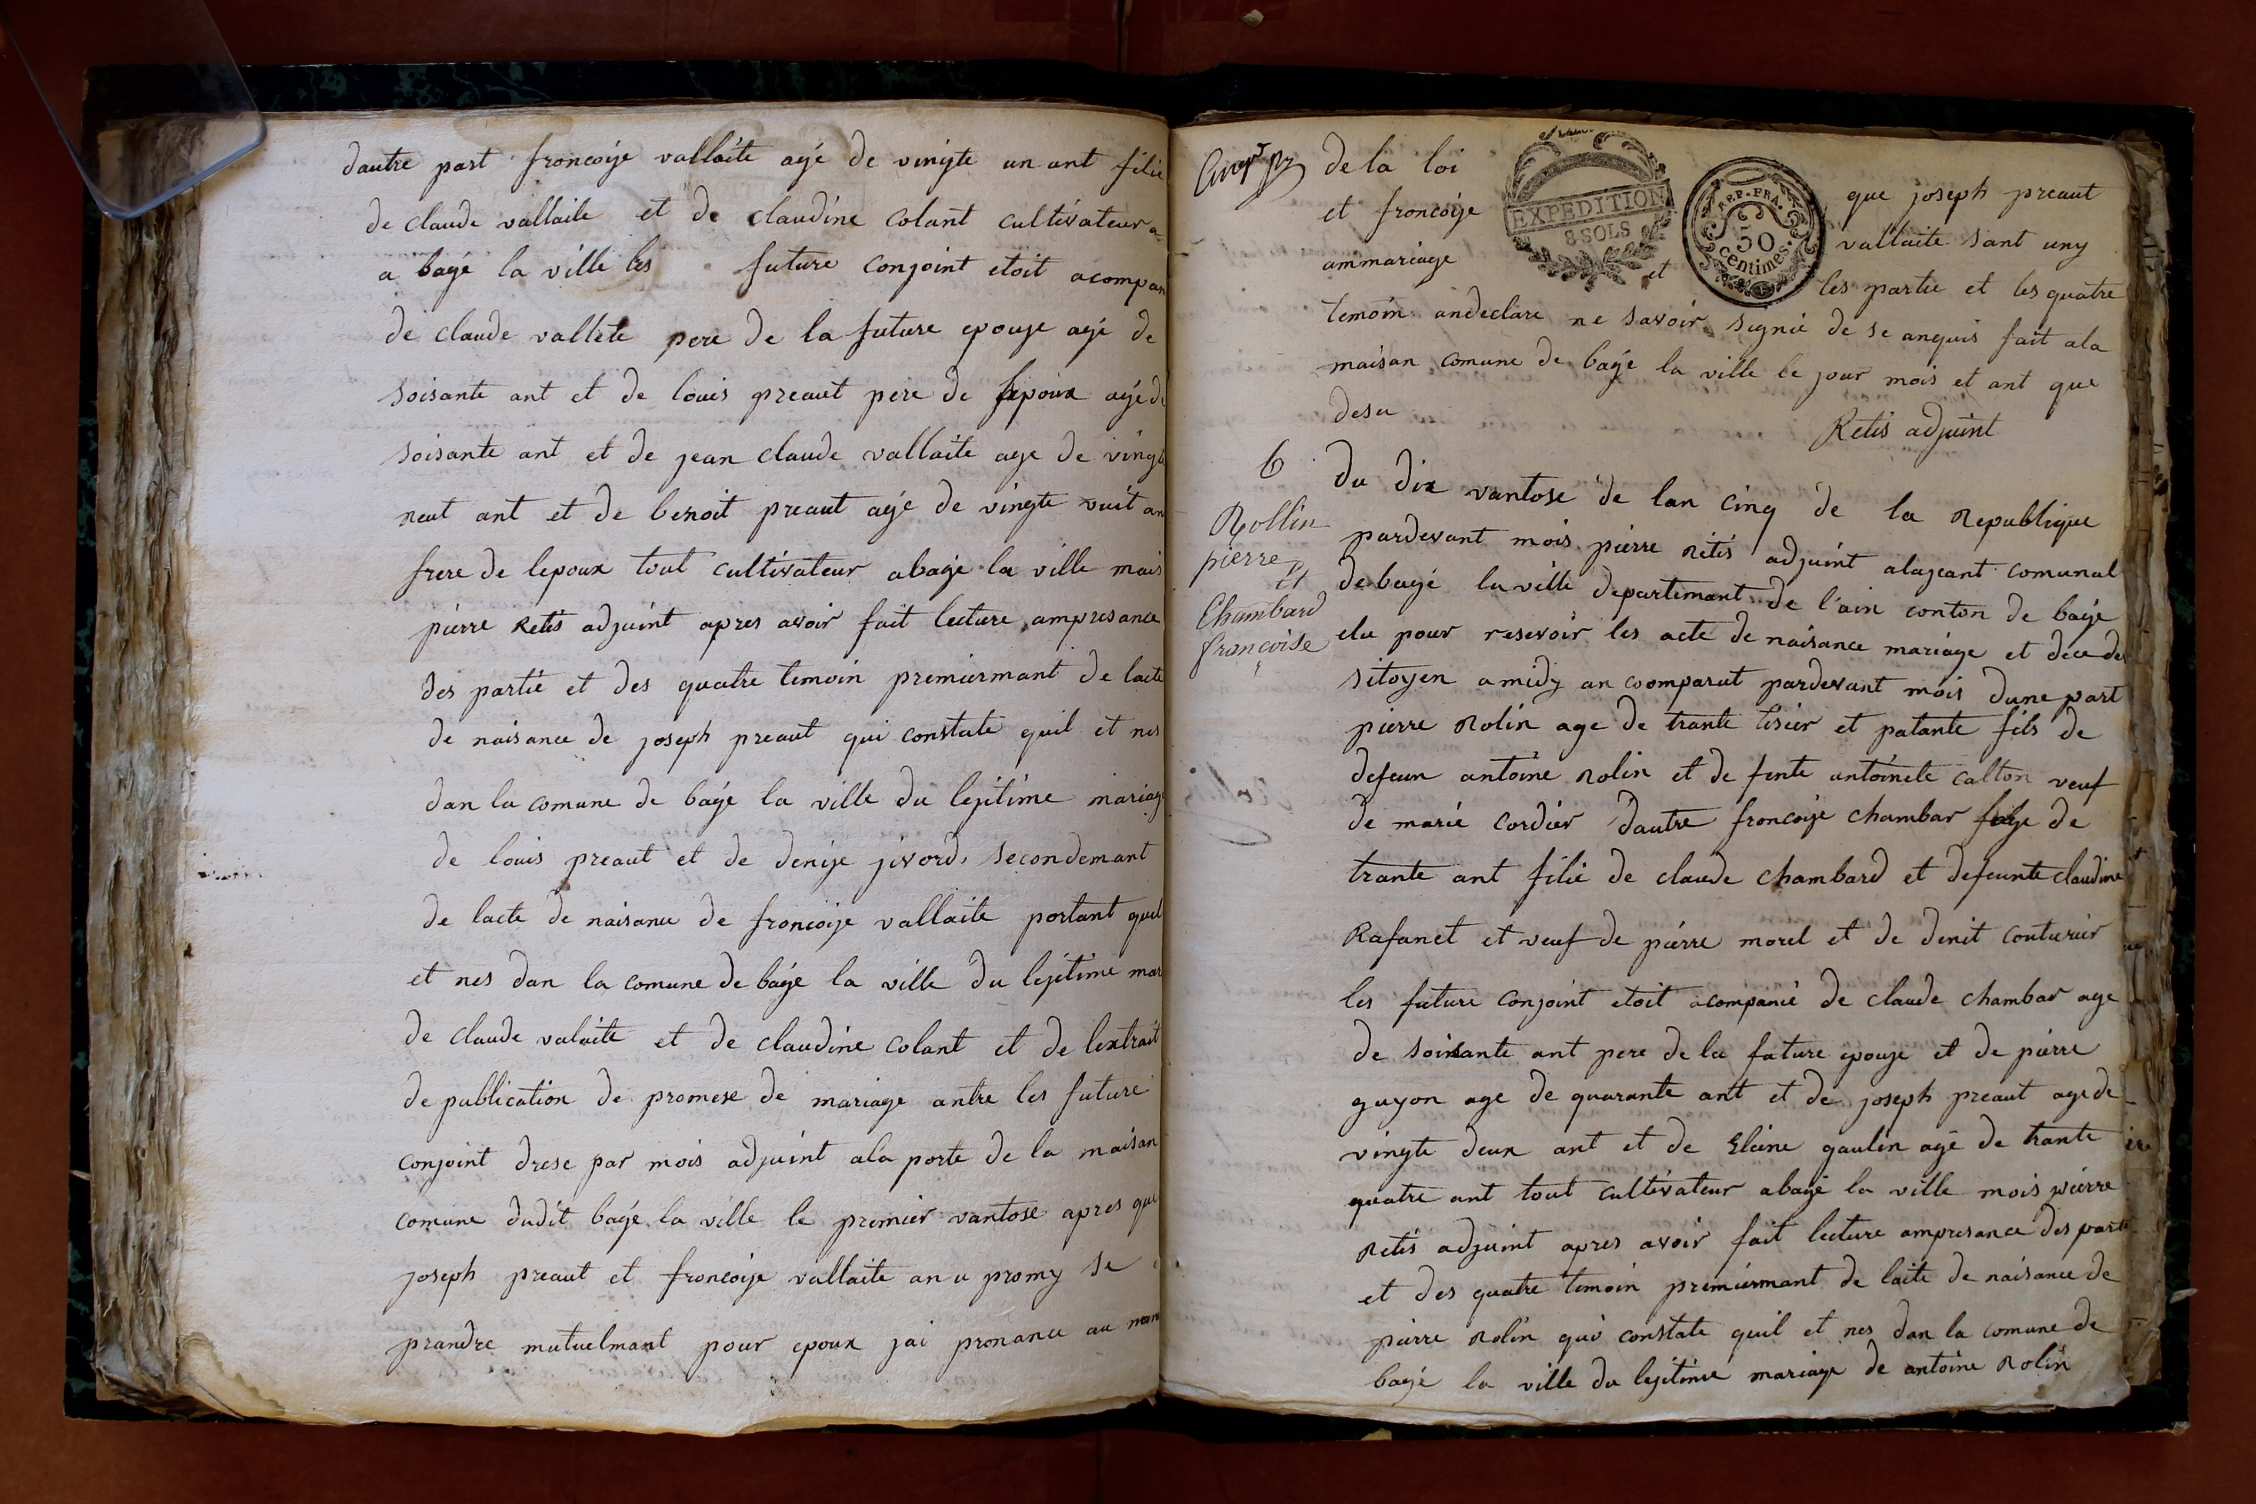 dautre part froncoije vallaite agé de vingte un ant filie
de claude vallaite et de claudine Colant cultivateur
a bagé la ville les future conjoint etoit acompan
de claude vallete pere de la future epouje agé de
soisante ant et de louis preaut pere de lepoux agé de
soisante ant et de jean claude vallaite age de vingte
neut ant et de benoit preaut agé de vingte vuit an
frere de lepoux tout cultivateur abagé la ville mois
pierre Retis adjuint apres avoir fait lecture ampresance
des partie et des quatre temoin premiermant de lacte
de naisance de joseph preaut qui constate quil et nes
dan la comune de bagé la ville du lejitime mariage
de louis preaut et de denije jivord, secondemant
de lacte de naisance de froncoije vallaite portant quel
et nes dan la comune de bagé la ville du lejitime mar
de claude valaite et de claudine Colant et de lextrait
de publication de promese de mariage antre les future
conjoint drese par mois adjuint ala porte de la maisan
comune dudit bagé la ville le premier vantose apres que
joseph preaut et froncoije vallaite an a promy se
prandre mutuelmant pour epoux jai pronance au nom
de la loi que joseph preaut
EXPEDITION
8 SOLS
REP. FRA.
50
centimes.
et froncoije vallaite sant uny
ammariage et les partie et les quatre
temoin andeclare ne savoir signié de se anquis fait ala
maisan comune de bagé la ville le jour mois et ant que
desu
Retis adjuint
6
Rollin
pierre
Et
Chambard
francoise
du dix vantose de lan cinq de la Republique
pardevant mois pierre Retis adjuint alajeant comunal
debagé la ville departemant de l'ain conton de bagé
elu pour resevoir les acte de naisance mariage et dece des
sitoyen amidy an coomparut pardevant mois dune part
pierre Rolin age de trante tisier et patante fils de
defeun antoine Rolin et de fente antoinete calton veuf
de marie cordier dautre froncoije chambar age de
trante ant filie de claude chambard et defeunte claudine
Rafanet et veuf de pierre morel et de denit couturier
les future conjoint etoit acompanié de claude chambar age
de soixante ant pere de la future epouje et de pierre
guyon age de quarante ant et de joseph preaut age de
vingte deux ant et de Eleine gaulin agé de trante
quatre ant tout cultivateur abagé la ville mois pierre
Retis adjuint apres avoir fait lecture ampresance des parti
et des quatre temoin premiermant de lacte de naisance de
pierre Rolin qui constate quil et nes dan la comune de
bagé la ville du lejitime mariage de antoine Rolin